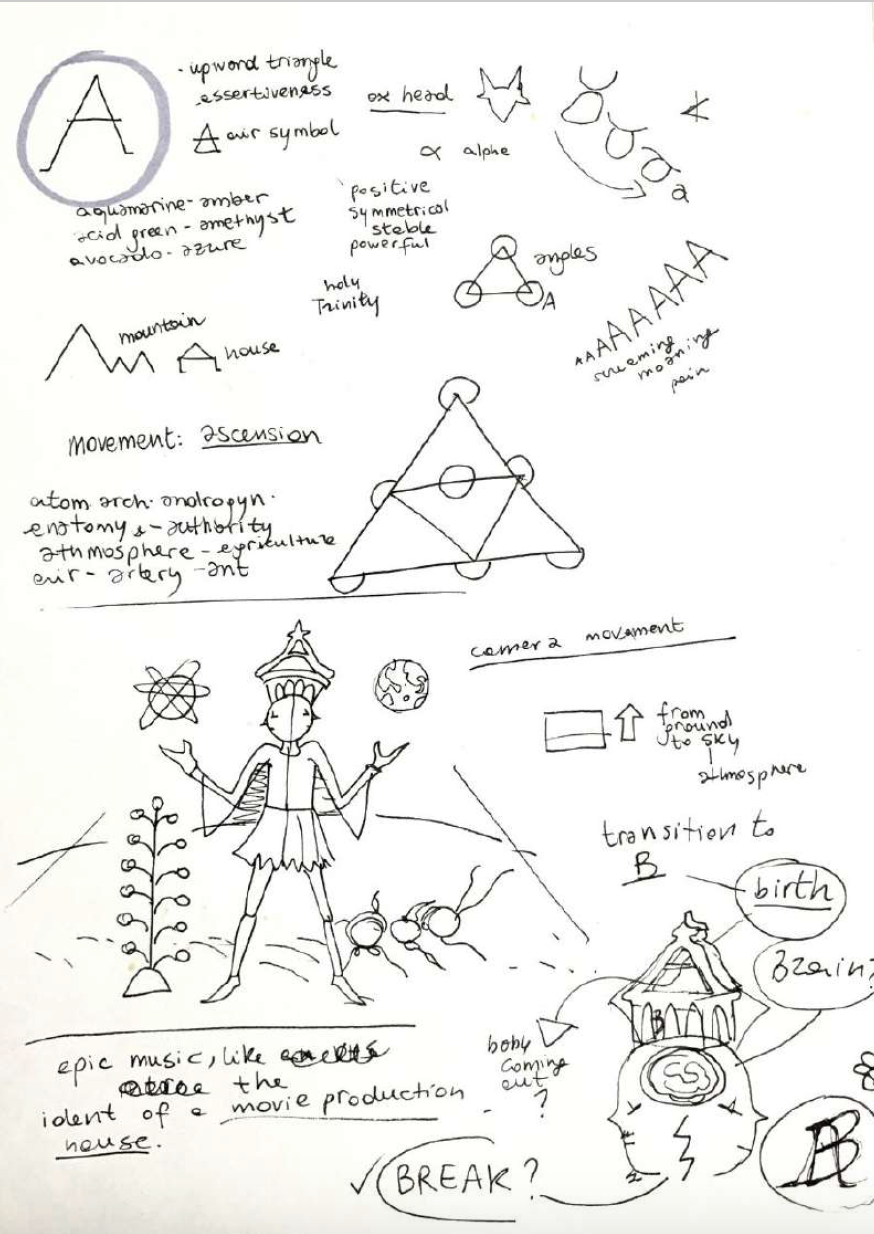 A
- upword triangle
essertiveness
A air symbol
ox head
α alphe
a
aquamarine - amber
acid green - amethyst
avocado - azure
positive
symmetrical
stable
powerful
holy
Trinity
angles
A
AAAAAAAA
screaming
moaning
pain
mountain
house
movement: ascension
atom arch. androgyn.
enatomy - authority
athmosphere - egriculture
eir - artery - ant
camera movement
from
ground
to sky
athmosphere
transition to
B
birth
Brain?
B
boby
coming
out
?
epic music, like
the
ident of a movie production
house.
✓ BREAK?
B